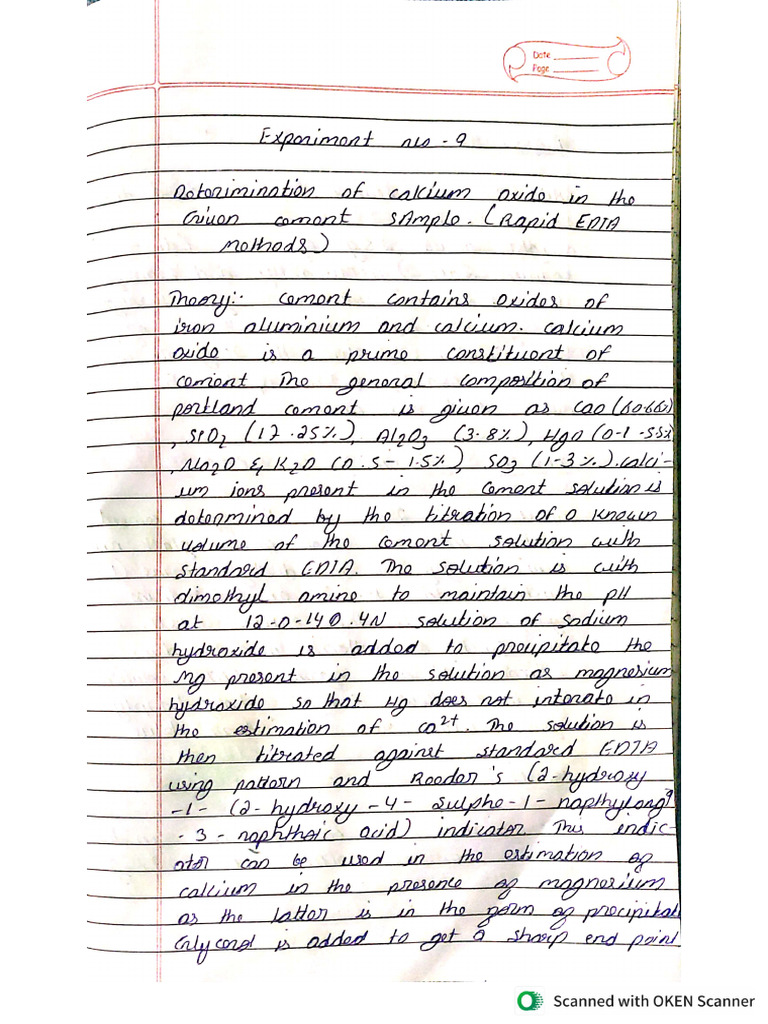 Date
Page
Experiment no - 9
Determination of calcium oxide in the
Given cement sample. (Rapid EDTA
methods)
Theory:- cement contains oxides of
iron aluminium and calcium. calcium
oxide is a prime constituent of
cement The general composition of
portland cement is given as CaO (60-66%)
, SiO2 (17-25%), Al2O3 (3-8%), MgO (0-1-5.5%
, Na2O & K2O (0.5-1.5%), SO3 (1-3%). calci-
um ions present in the cement solution is
determined by the titration of a known
volume of the cement solution with
standard EDTA. The solution is with
dimethyl amine to maintain the pH
at 12-0-14 0.4N solution of sodium
hydroxide is added to precipitate the
Mg present in the solution as magnesium
hydroxide so that Mg does not interate in
the estimation of Ca2+. The solution is
then titrated against standard EDTA
using pattern and Reeder's (2-hydroxy
-1- (2-hydroxy-4-sulpho-1-
-3-naphthoic acid) indicator. This indic-
ator can be used in the estimation of
calcium in the presence of magnesium
as the latter is in the form of precipitat
Glycerol is added to get a sharp end point
Scanned with OKEN Scanner